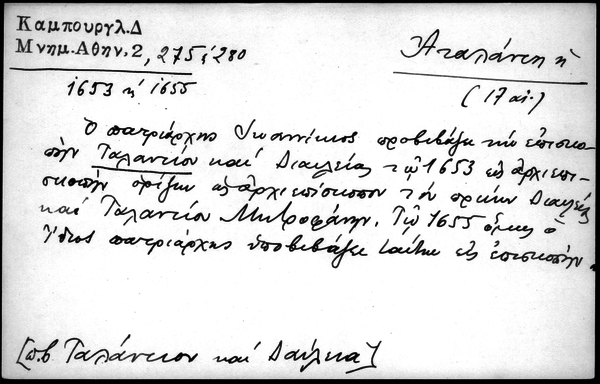 Καμπουργλ.Δ
Μνημ.Αθην.2, 275 & 280
1653 ή 1655
Ἀταλάντη ἡ
(17 αἰ.)
Ὁ πατριάρχης Ἰωαννίκιος προβιβάζει τήν ἐπισκο-
πήν Ταλαντίου καί Διαυλείας τῷ 1653 εἰς ἀρχιεπι-
σκοπήν ὁρίζων ὡς ἀρχιεπίσκοπον τόν πρώην Διαυλείας
καί Ταλαντίου Μητροφάνην. Τῷ 1655 ὅμως ὁ
ἴδιος πατριάρχης ὑποβιβάζει ταύτην εἰς ἐπισκοπήν.
[πβ Ταλάντιον καί Δαύλεια]